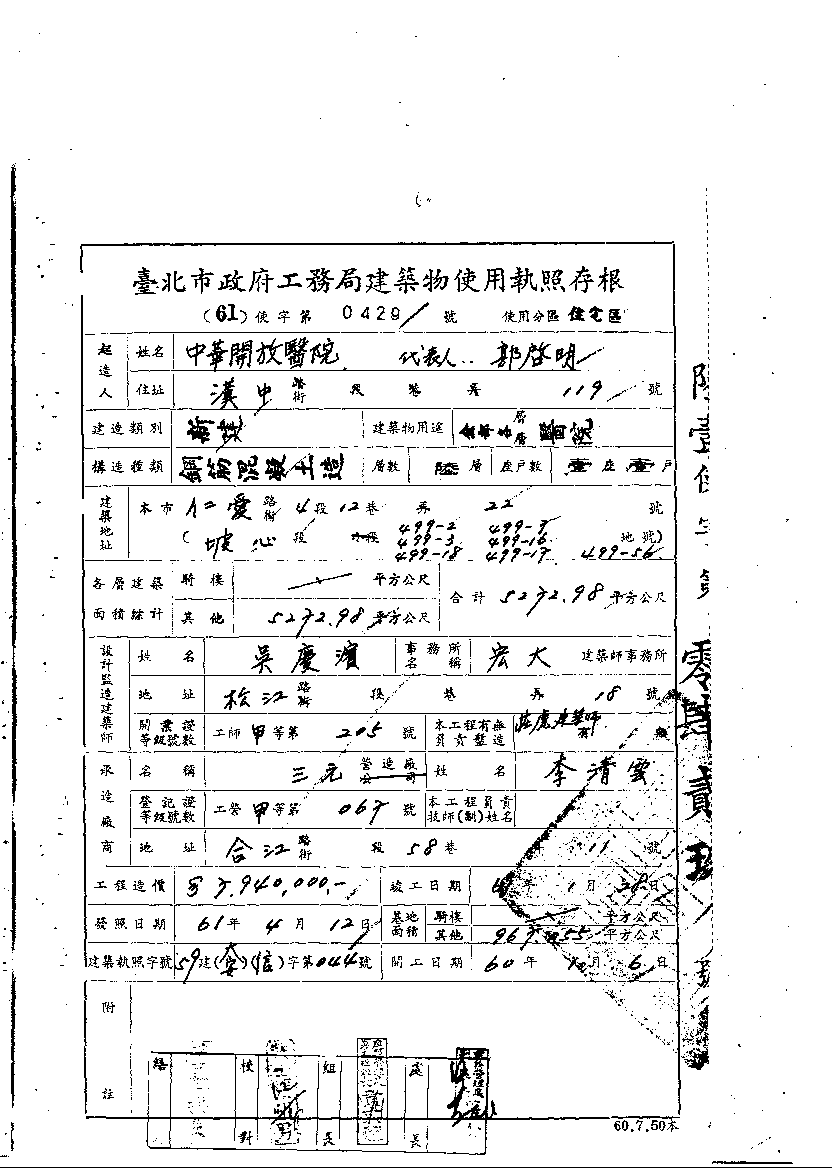 臺北市政府工務局建築物使用執照存根
(61)使字第 0429 號 使用分區 住宅區
起造人 姓名 中華開放醫院 代表人 郭啓明
住址 漢中 路街 段 巷 弄 119 號
建造類別 新建 建築物用途 醫院
構造種類 鋼筋混凝土造 層數 陸 層 座戶數 壹 座 壹 戶
建築地址 本市 仁愛 路街 4 段 12 巷 弄 22 號
( 坡心 段 小段 499-2 499-7 地號)
499-3 499-16
499-18 499-17 499-56
各層建築面積總計 騎樓 平方公尺 合計 5272.98 平方公尺
其他 5272.98 平方公尺
設計監造建築師 姓名 吳慶濱 事務所名稱 宏大 建築師事務所
地址 松江 路街 段 巷 弄 18 號
開業證等級號數 工師 甲 等第 205 號 本工程有無負責監造
承造廠商 名稱 三元 營造廠公司 姓名 李清雲
登記證等級號數 工營 甲 等第 067 號 本工程負責技師(副)姓名
地址 合江 路街 段 58 巷 11 號
工程造價 7,940,000,- 竣工日期 年 1 月 28 日
發照日期 61 年 4 月 12 日 基地面積 騎樓 平方公尺
其他 967.55 平方公尺
建築執照字號 59 建(大安)(信)字第 044 號 開工日期 60 年 月 6 日
附註
校對 組長 處長
60.7.50本